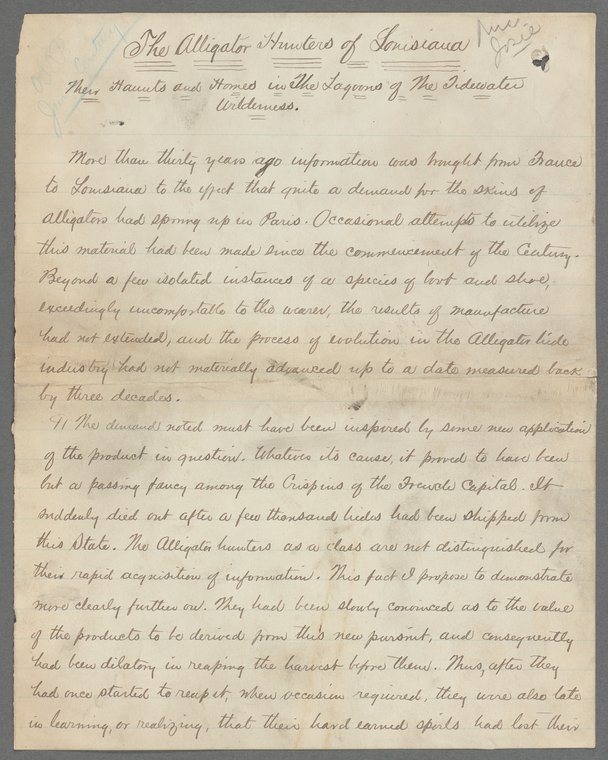 The Alligator Hunters of Louisiana
Josie
Their Haunts and Homes in The Lagoons of The Tidewater
Wilderness.
More than thirty years ago information was brought from France
to Louisiana to the effect that quite a demand for the skins of
alligators had sprung up in Paris. Occasional attempts to utilize
this material had been made since the commencement of the Century.
Beyond a few isolated instances of a species of boot and shoe,
exceedingly uncomfortable to the wearer, the results of manufacture
had not extended, and the process of evolution in the Alligator hide
industry had not materially advanced up to a date measured back
by three decades.
¶ The demand noted must have been inspired by some new application
of the product in question. Whatever its cause, it proved to have been
but a passing fancy among the Crispins of the French Capital. It
suddenly died out after a few thousand hides had been shipped from
this State. The Alligator hunters as a class are not distinguished for
their rapid acquisition of information. This fact I propose to demonstrate
more clearly further on. They had been slowly convinced as to the value
of the products to be derived from this new pursuit, and consequently
had been dilatory in reaping the harvest before them. Thus, after they
had once started to reap it, when occasion required, they were also late
in learning, or realizing, that their hard earned spoils had lost their